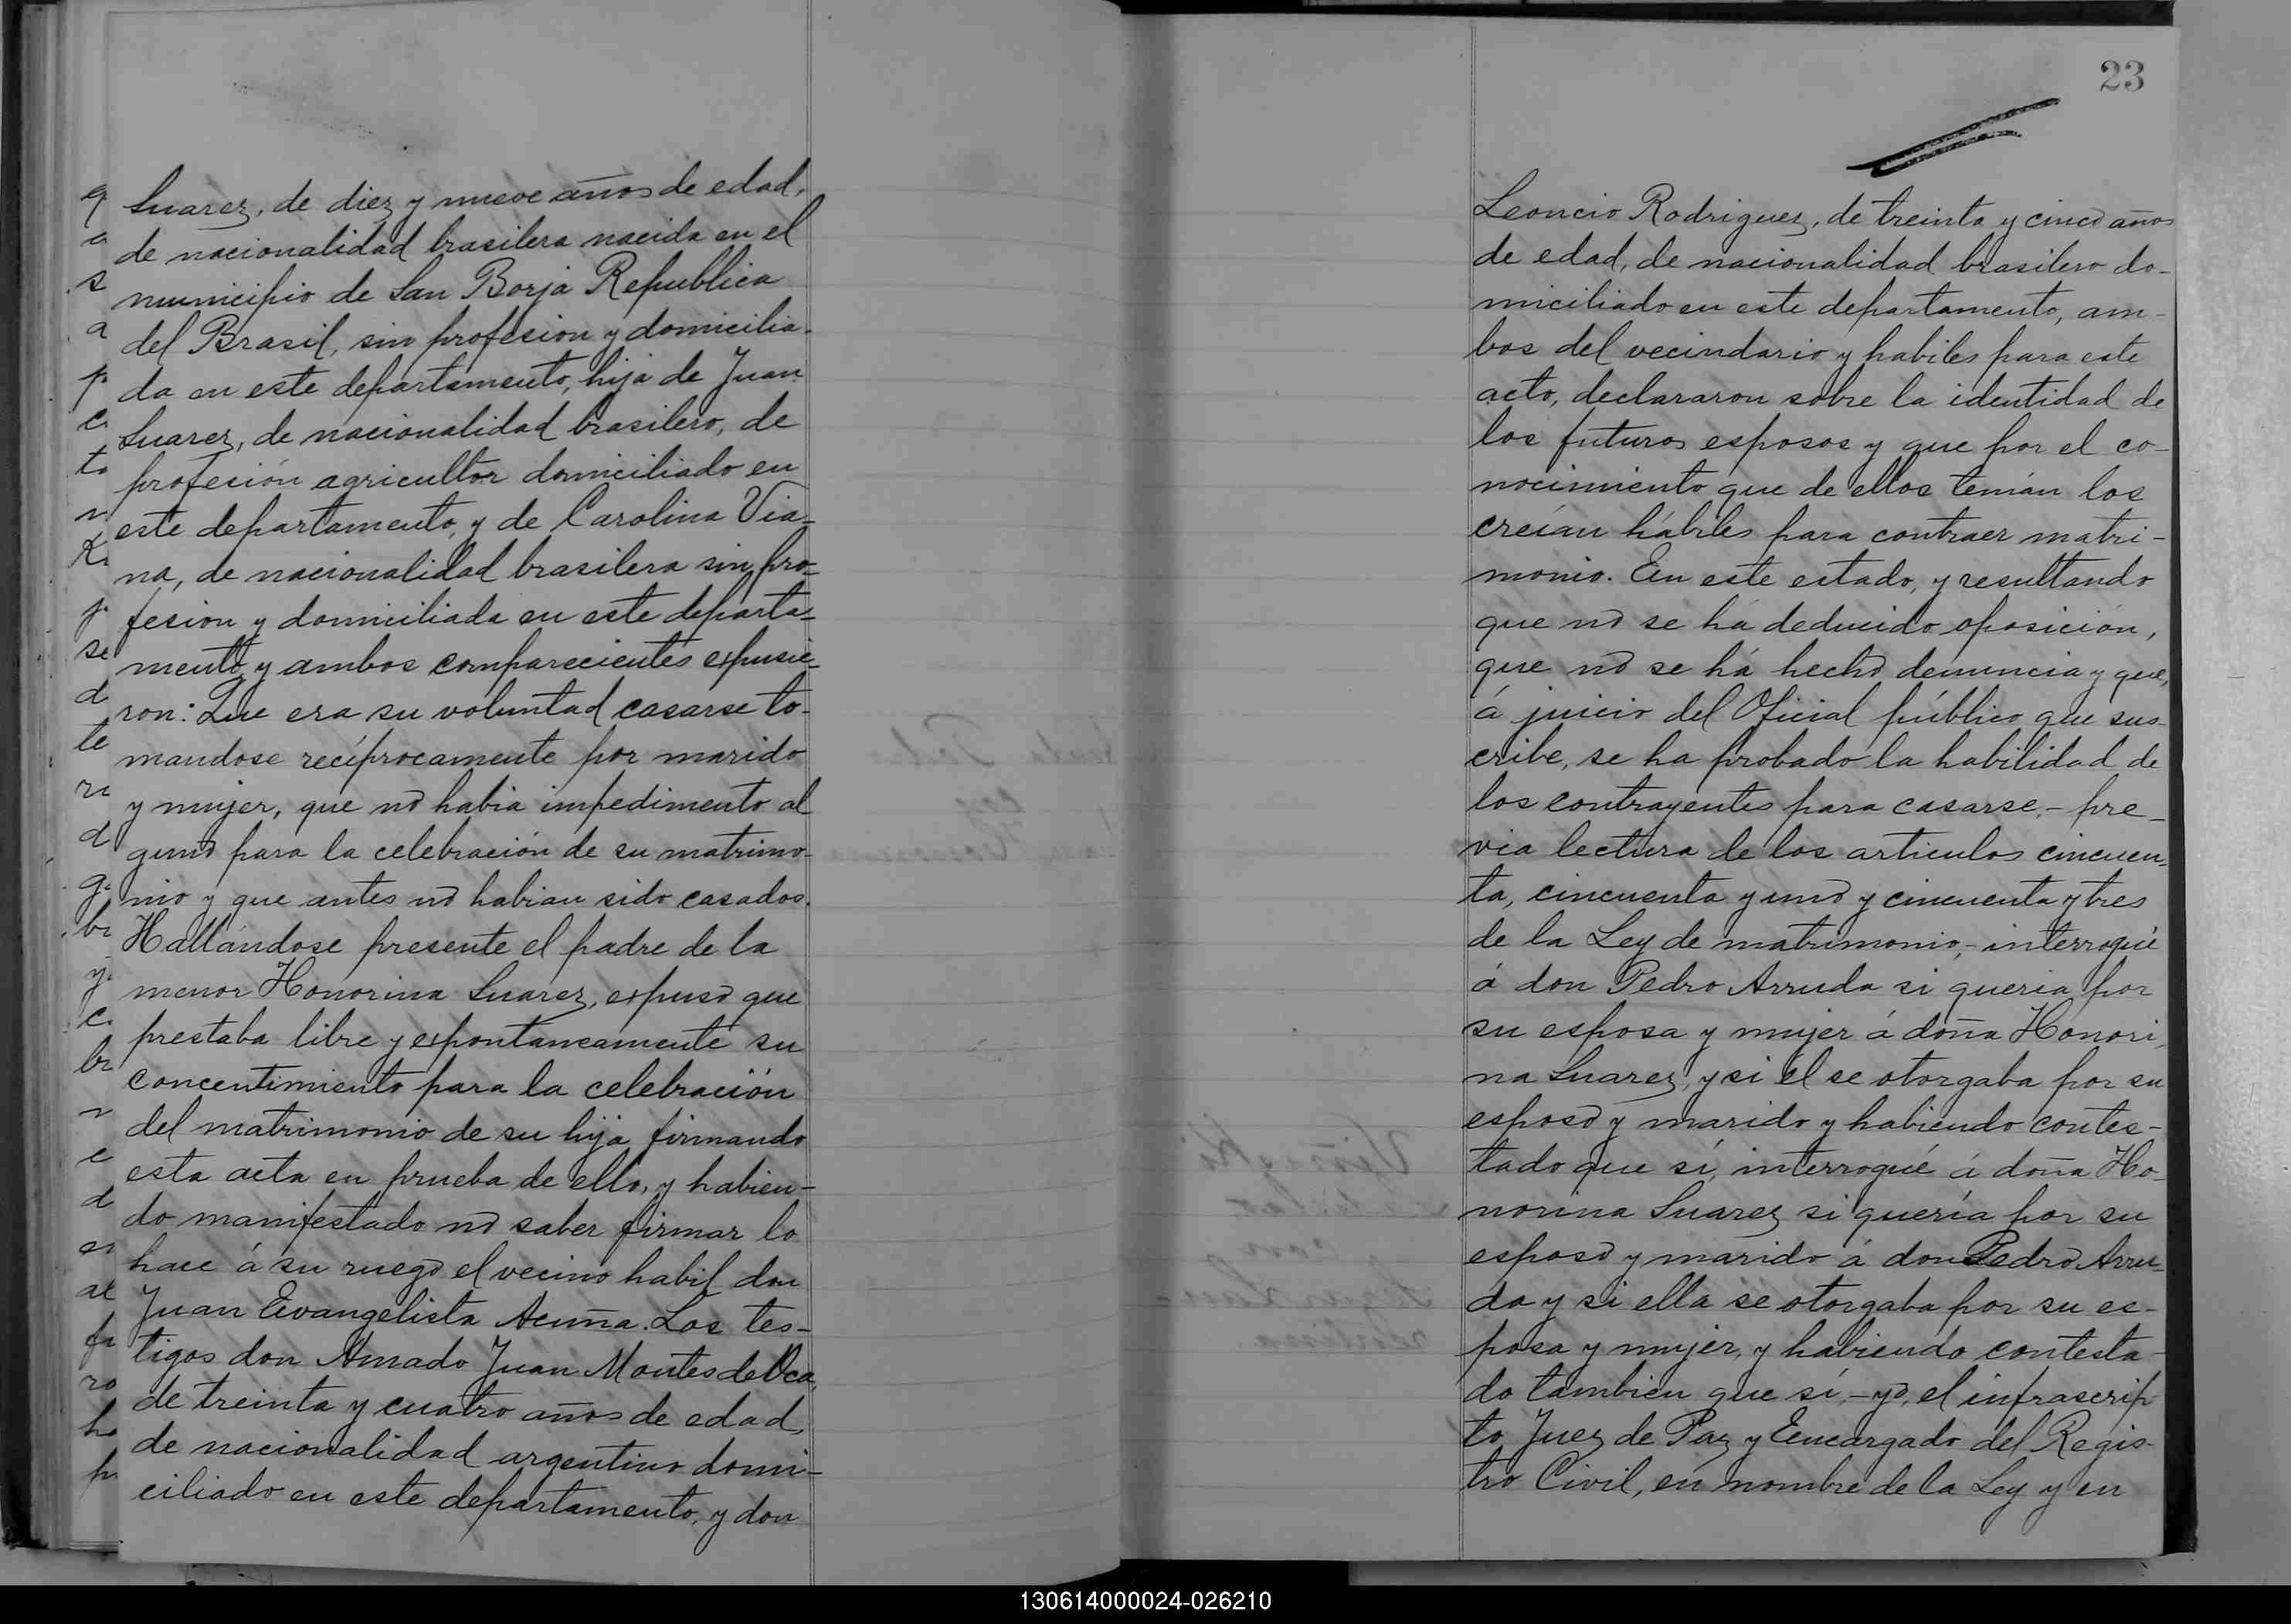 Suarez, de diez y nueve años de edad,
de nacionalidad brasilera nacida en el
municipio de San Borja Republica
del Brasil, sin profesion y domicilia-
da en este departamento, hija de Juan
Suarez, de nacionalidad brasilero, de
profesión agricultor domiciliado en
este departamento, y de Carolina Via-
na, de nacionalidad brasilera sin pro-
fesion y domiciliada en este departa-
mento, y ambos comparecientes expusie-
ron: Que era su voluntad casarse to-
mandose recíprocamente por marido
y mujer, que nó habia impedimento al
gunó para la celebración de su matrimo-
nio y que antes nó habian sido casados.
Hallándose presente el padre de la
menor Honorina Suarez, expusó que
prestaba libre y espontaneamente su
concentimiento para la celebración
del matrimonio de su hija firmando
esta acta en prueba de ello, y habien-
do manifestado nó saber firmar lo
hace á su ruegó el vecino habil don
Juan Evangelista Acuña. Los tes-
tigos don Amado Juan Montes de Oca,
de treinta y cuatro años de edad,
de nacionalidad argentino domi-
ciliado en este departamento, y don
23
Leoncio Rodriguez, de treinta y cinco años
de edad, de nacionalidad brasilero do-
miciliado en este departamento, am-
bos del vecindario y habiles para este
acto, declararon sobre la identidad de
los futuros esposos y que por el co-
nocimiento que de ellos tenian los
creían hábiles para contraer matri-
monio. En este estado, y resultando
que nó se há deducido oposición,
que nó se há hechó denuncia y que,
á juicio del Oficial público que sus-
cribe, se ha probado la habilidad de
los contrayentes para casarse,- pre-
via lectura de los articulos cincuen-
ta, cincuenta y unó y cincuenta y tres
de la Ley de matrimonio,- interrogué
á don Pedro Arruda si queria por
su esposa y mujer á doña Honori-
na Suarez, y si él se otorgaba por su
esposó y marido y habiendo contes-
tado que sí, interrogué á doña Ho-
norina Suarez si quería por su
esposó y marido á don Pedro Arru-
da y si ella se otorgaba por su es-
posa y mujer, y habiendo contesta-
do tambien que sí,- yó, el infrascrip-
to Juez de Paz y Encargado del Regis-
tro Civil, en nombre de la Ley y en
130614000024-026210